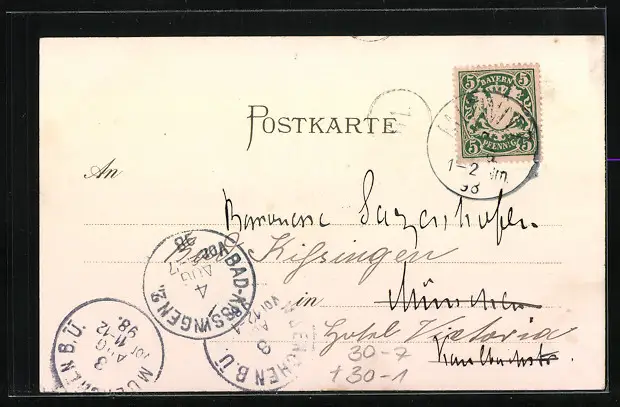 5 BAYERN 5
5 PFENNIG 5
POSTKARTE
1-2 Nm.
98
An
Baronesse
Bad Kissingen
in München
Hotel Viktoria
Kaulbachstr.
30-7
+30-1
BAD-KISSINGEN 2.
4
AUG
98
MUENCHEN B.Ü.
3
AUG
11-12
98.
MUENCHEN B.Ü.
3